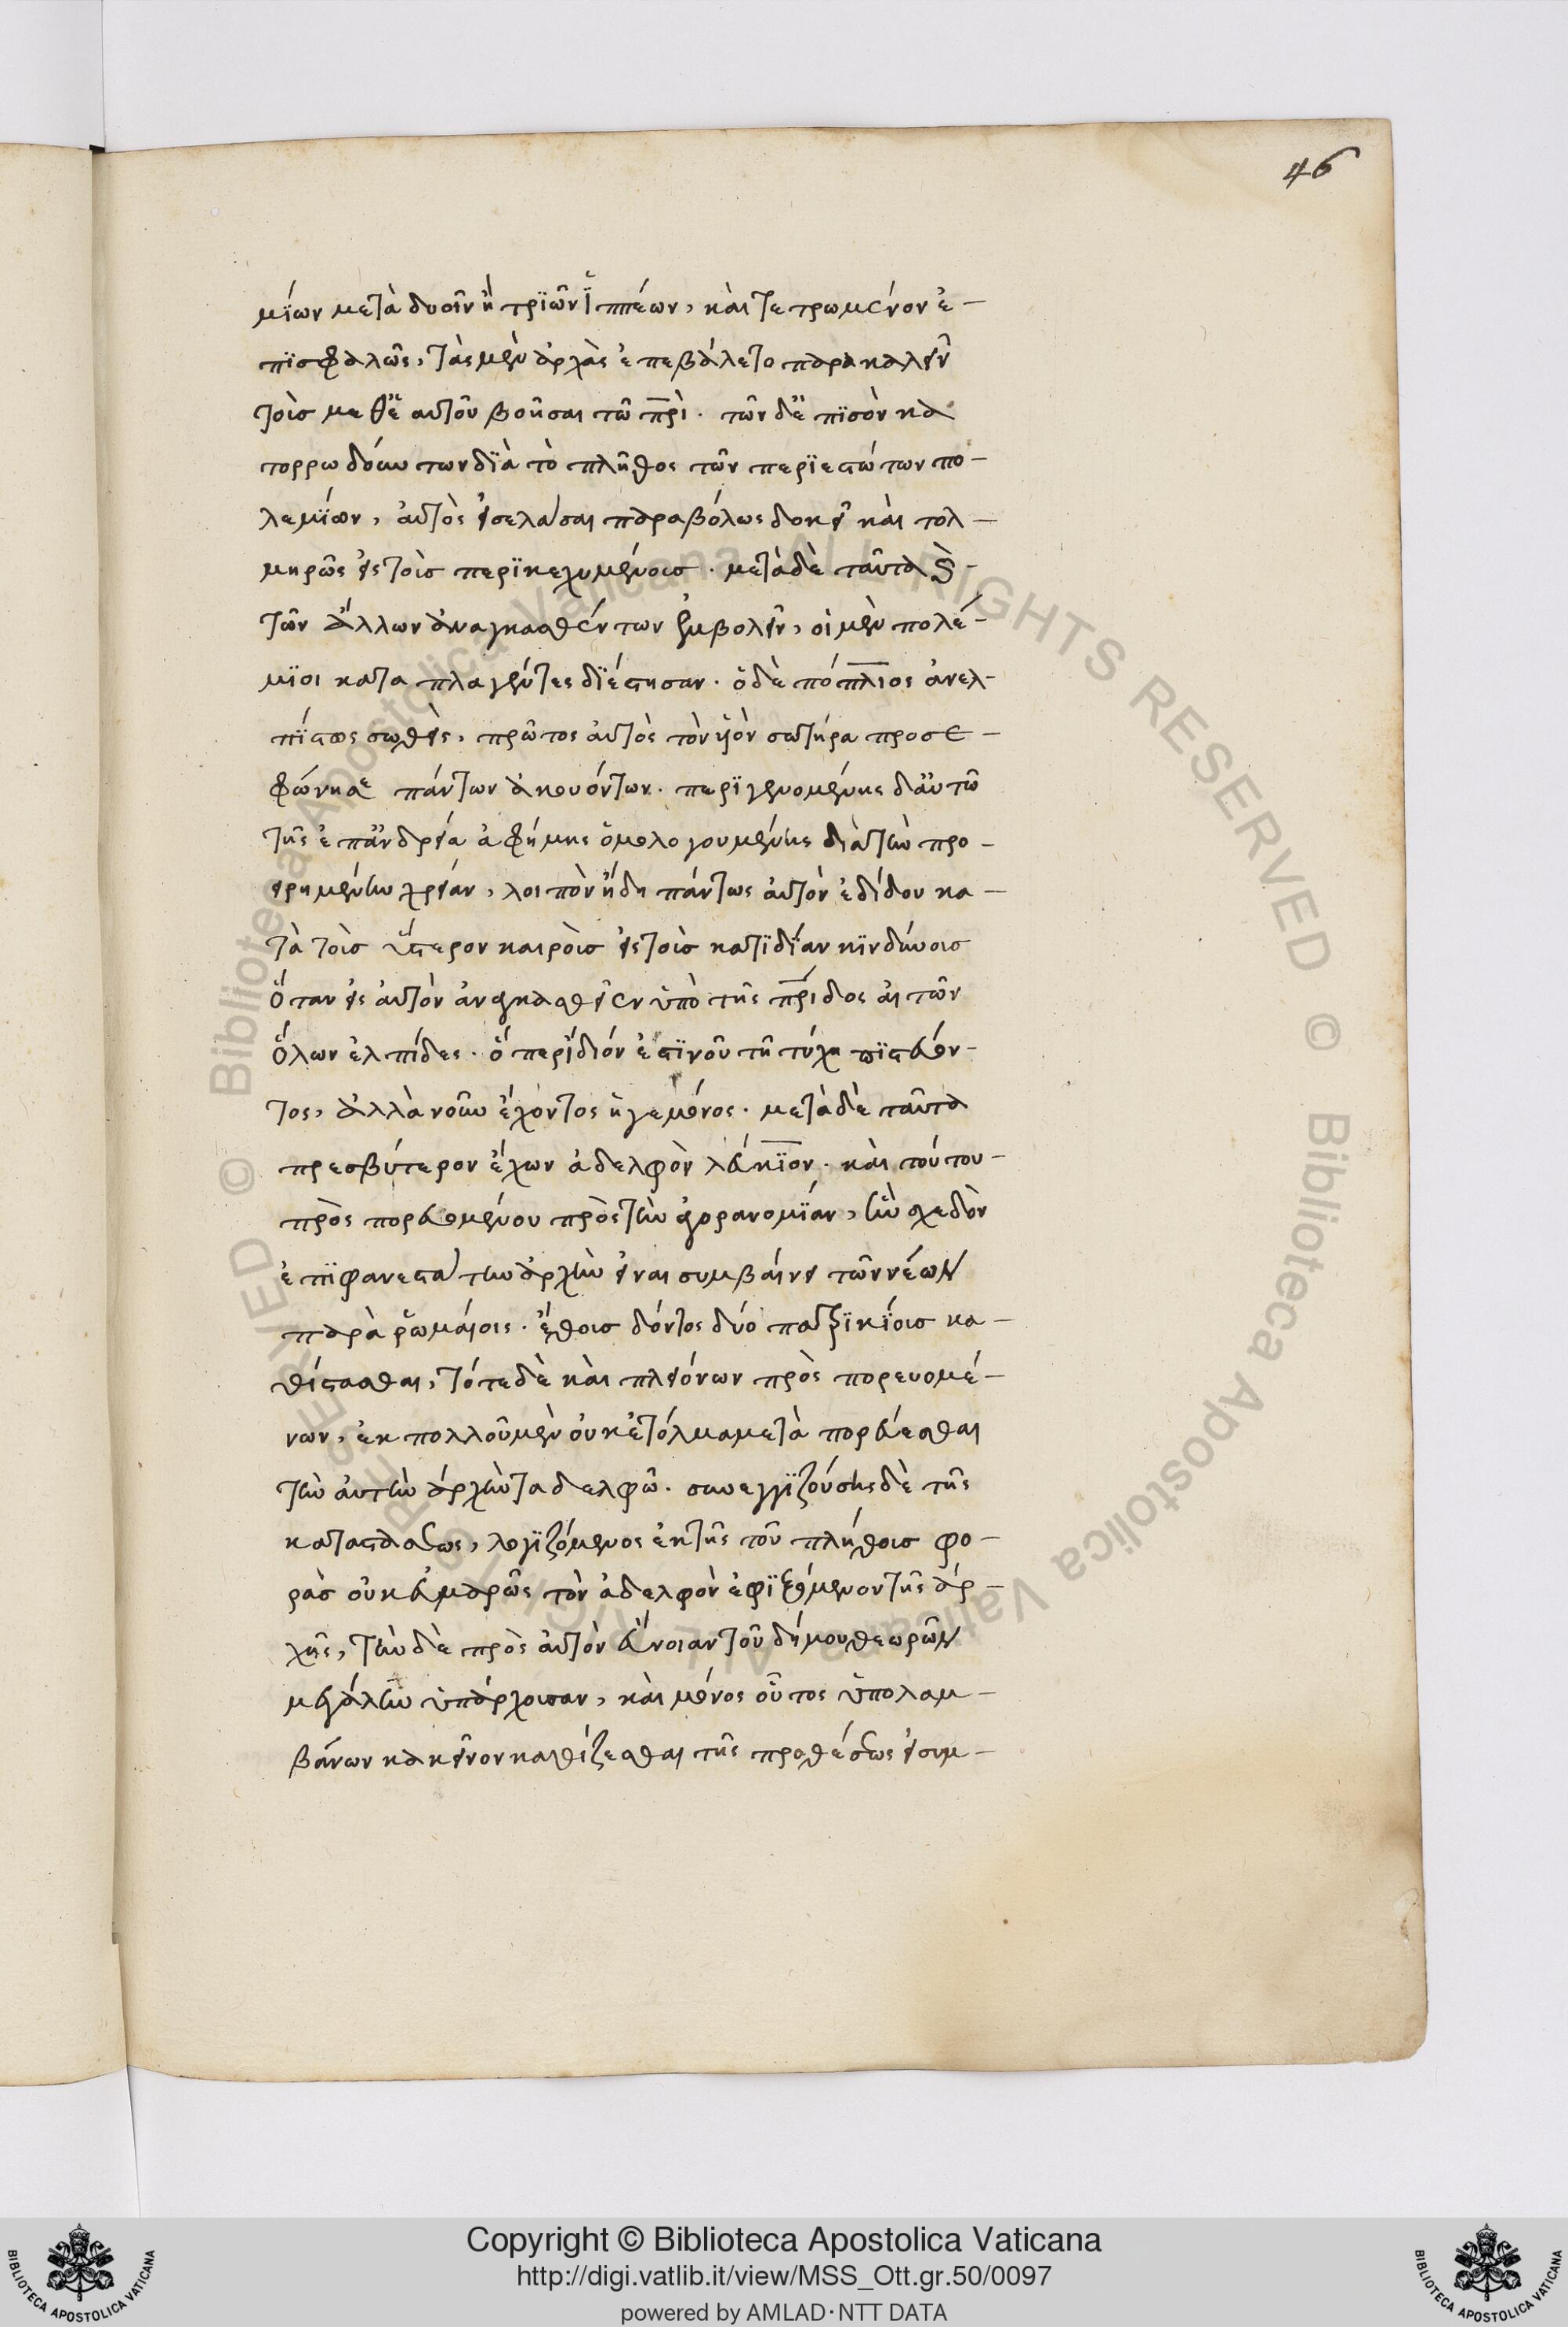 46
μίων μετὰ δυοῖν ἢ τριῶν ἱππέων, καὶ τετρωμένον ἐ-
πισφαλῶς, τὰς μὲν ἀρχὰς ἐπεβάλετο παρακαλεῖν
τοῖς μεθ' αὐτοῦ βοηῆσαι τῶ πρὶ. τῶν δ' ἐπισὸν κα
τορρωδούντων διὰ τὸ πλῆθος τῶν περιεστώτων πο-
λεμίων, αὐτὸς εἰσελάσαι παραβόλως δοκεῖ καὶ τολ-
μηρῶς εἰς τοὶς περικεχυμένοις. μετὰ δὲ ταῦτα
τῶν ἄλλων ἀναγκασθέντων ἐμβολεῖν, οἱ μὲν πολέ-
μιοι καταπλαγέντες διέστησαν. ὁ δὲ πόπλιος ἀνελ-
πίστως σωθεὶς, πρῶτος αὐτὸς τὸν υἱὸν σωτῆρα προσε-
φώνησε πάντων ἀκουόντων. περιγενομένης δ' αὐτῶ
τῆς ἐπ' ἀνδρεία φήμης ὁμολογουμένης διὰ τὴν προ-
ειρημένην χρείαν, λοιπὸν ἤδη πάντως αὐτὸν ἐδίδου κα-
τὰ τοὶς ὕστερον καιροὶς εἰς τοὶς κατιδίαν κινδύνοις
ὅταν εἰς αὐτὸν ἀνακλασθεῖεν ὑπὸ τῆς πρίδος αἱ τῶν
ὅλων ἐλπίδες. ὅπερ ἴδιόν ἐστιν οὐ τῆ τύχη πιστεύον-
τος, ἀλλὰ νοῦν ἔχοντος ἡγεμόνος. μετὰ δὲ ταῦτα
πρεσβύτερον ἔχων ἀδελφὸν λεύκιον. καὶ τούτου
προσπορευομένου πρὸς τὴν ἀγορανομίαν, ἣν σχεδὸν
ἐπιφανεστάτην ἀρχὴν εἶναι συμβαίνει τῶν νέων
παρὰ ῥωμαίοις. ἔθοις δ' ὄντος δύο πατρικίοις κα-
θίστασθαι, τότε δὲ καὶ πλειόνων προσπορευομέ-
νων, ἐκ πολλοῦ μὲν οὐκ ἐτόλμα μεταπορεύεσθαι
τὴν αὐτὴν ἀρχὴν τἀδελφῶ. συνεγγιζούσης δὲ τῆς
καταστάσεως, λογιζόμενος ἐκ τῆς τοῦ πλήθοις φο-
ρᾶς οὐκ εὐμαρῶς τὸν ἀδελφὸν ἐφιξόμενον τῆς ἀρ-
χῆς, τὴν δὲ πρὸς αὐτὸν εὔνοιαν τοῦ δήμου θεωρῶν
μεγάλην ὑπάρχοισαν, καὶ μόνος οὕτος ὑπολαμ-
βάνων κἀκεῖνον καθίξεσθαι τῆς προθέσεως εἰ συμ-
Copyright © Biblioteca Apostolica Vaticana
http://digi.vatlib.it/view/MSS_Ott.gr.50/0097
powered by AMLAD·NTT DATA